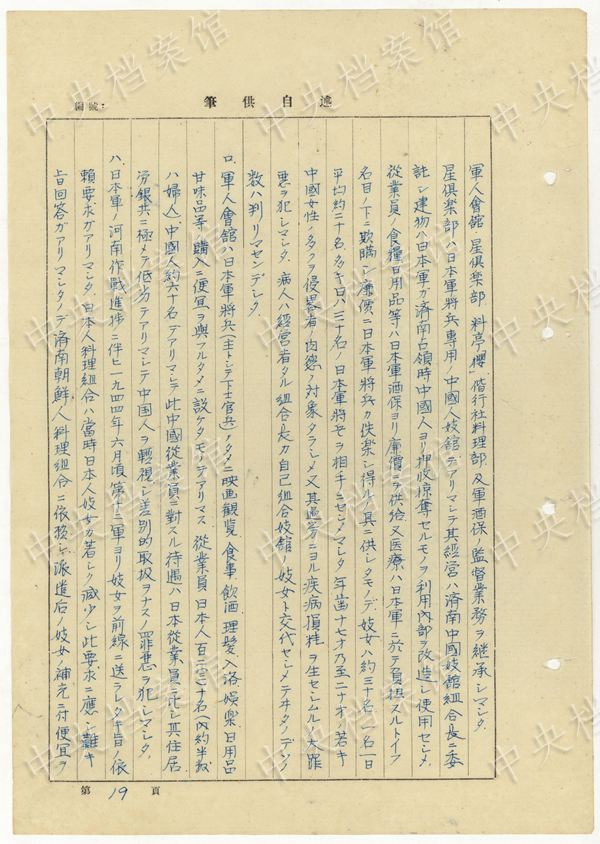 編號：
筆供自述
軍人會館、星倶楽部、料亭櫻、偕行社料理部、及軍酒保ノ監督業務ヲ継承シマシタ.
星倶楽部ハ日本軍將兵専用ノ中國人妓館デアリマシテ其経営ハ済南中國妓館組合長ニ委
託シ建物ハ日本軍ガ済南占領時、中國人ヨリ押收掠奪セルモノヲ利用内部ヲ改造シ使用セシメ、
從業員ノ食糧日用品等ハ日本軍酒保ヨリ廉價ニテ供給又医療ハ日本軍ニ於テ負担スルトイフ
名目ノ下ニ欺瞞シ廉價ニ日本軍將兵カ佚楽シ得ル具ニ供シタモノデ、妓女ハ約三十名、一名一日
平均約二十名、多キ日ハ三十名ノ日本軍將兵ヲ相手ニセシメマシタ、年齒十七才乃至二十才ノ若キ
中國女性ノ多クヲ侵畧者ノ肉慾ノ対象タラシメ又其過労ニヨル疾病損耗ヲ生セシムルノ大罪
悪ヲ犯シマシタ、病人ハ経営者タル組合長カ自己組合妓館ノ妓女ト交代セシメテヰタノデソノ
数ハ判リマセンデシタ.
ロ、軍人會館ハ日本軍將兵(主トシテ下士官兵)ノタメニ映画観覧、食事、飲酒、理髪、入浴、娯楽、日用品
甘味品等ノ購入ニ便宜ヲ與フルタメニ設ケタモノデアリマス、從業員、日本人百二、三十名(内約半数
ハ婦人)、中國人約六十名デアリマシテ此中國從業員ニ対スル待遇ハ日本從業員ニ比シ其住居、
労銀共ニ極メテ低劣デアリマシテ中国人ヲ軽視シ差別的取扱ヲナスノ罪悪ヲ犯シマシタ.
ハ、日本軍ノ河南作戦進捗ニ伴ヒ一九四四年六月頃第十二軍ヨリ妓女ヲ前線ニ送ラレタキ旨ノ依
頼要求ガアリマシタ、日本人料理組合ハ當時日本人妓女カ若シク減少シ此要求ニ應シ難キ
旨回答ガアリマシタノデ済南朝鮮人料理組合ニ依頼シ派遣后ノ妓女ノ補充ニ付便宜ヲ
第19頁
中央档案馆